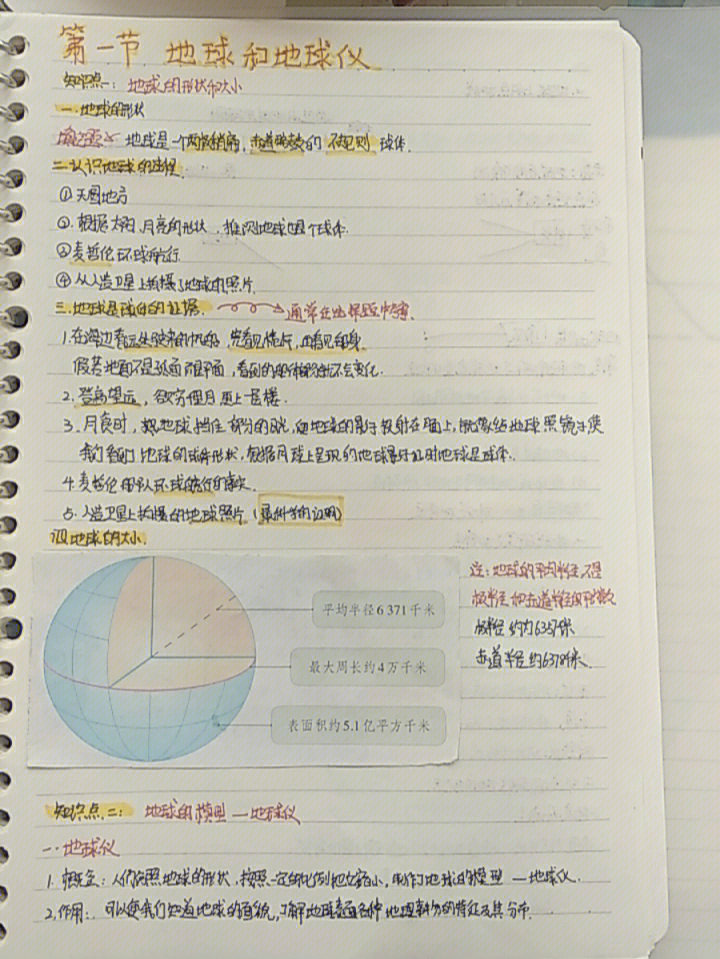 第一节 地球和地球仪
知识点一: 地球的形状和大小
一.地球的形状
地球是一个两极稍扁,赤道略鼓的 不规则 球体.
二.认识地球的过程
①天圆地方
②.根据太阳、月亮的形状,推测地球也是个球体.
③麦哲伦环球航行.
④从人造卫星上拍摄了地球的照片.
三.地球是球体的证据. 通常在选择题中考.
1.在海边看远处驶来的帆船,先看见桅杆,再看见船身.
假若地面不是弧面而是平面,看到的船体部分就不会变化.
2.登高望远,欲穷千里目更上一层楼.
3.月食时,
我们看到了地球的球体形状,根据月球上呈现的地球影子证明地球是球体.
4.麦哲伦船队环球航行的事实.
5.人造卫星上拍摄的地球照片(最科学的证明)
四.地球的大小
平均半径6 371千米
最大周长约4万千米
表面积约5.1亿平方千米
注:地球的平均半径,不是
极半径和赤道半径的平均数
极半径 约为6357千米
赤道半径约6378千米.
知识点二: 地球的模型—地球仪
一.地球仪
1.概念:人们仿照地球的形状,按照一定的比例把它缩小,制作了地球的模型—地球仪.
2.作用: 可以使我们知道地球的面貌,了解地球表面各种地理事物的特征及其分布.